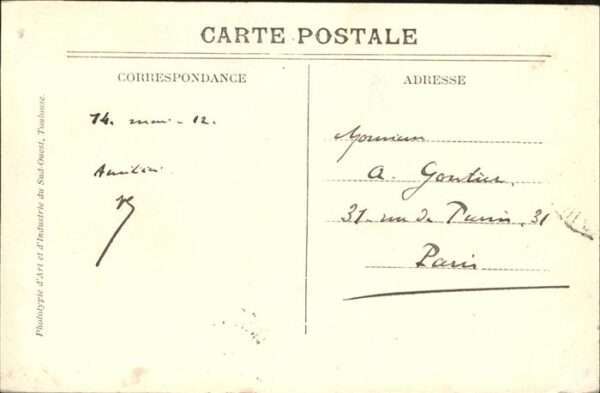 CARTE POSTALE
CORRESPONDANCE
ADRESSE
14. mai - 12.
Monsieur
A. Gontier,
31 - rue de Turin, 31
Paris
Phototypie d'Art et d'Industrie du Sud-Ouest, Toulouse.